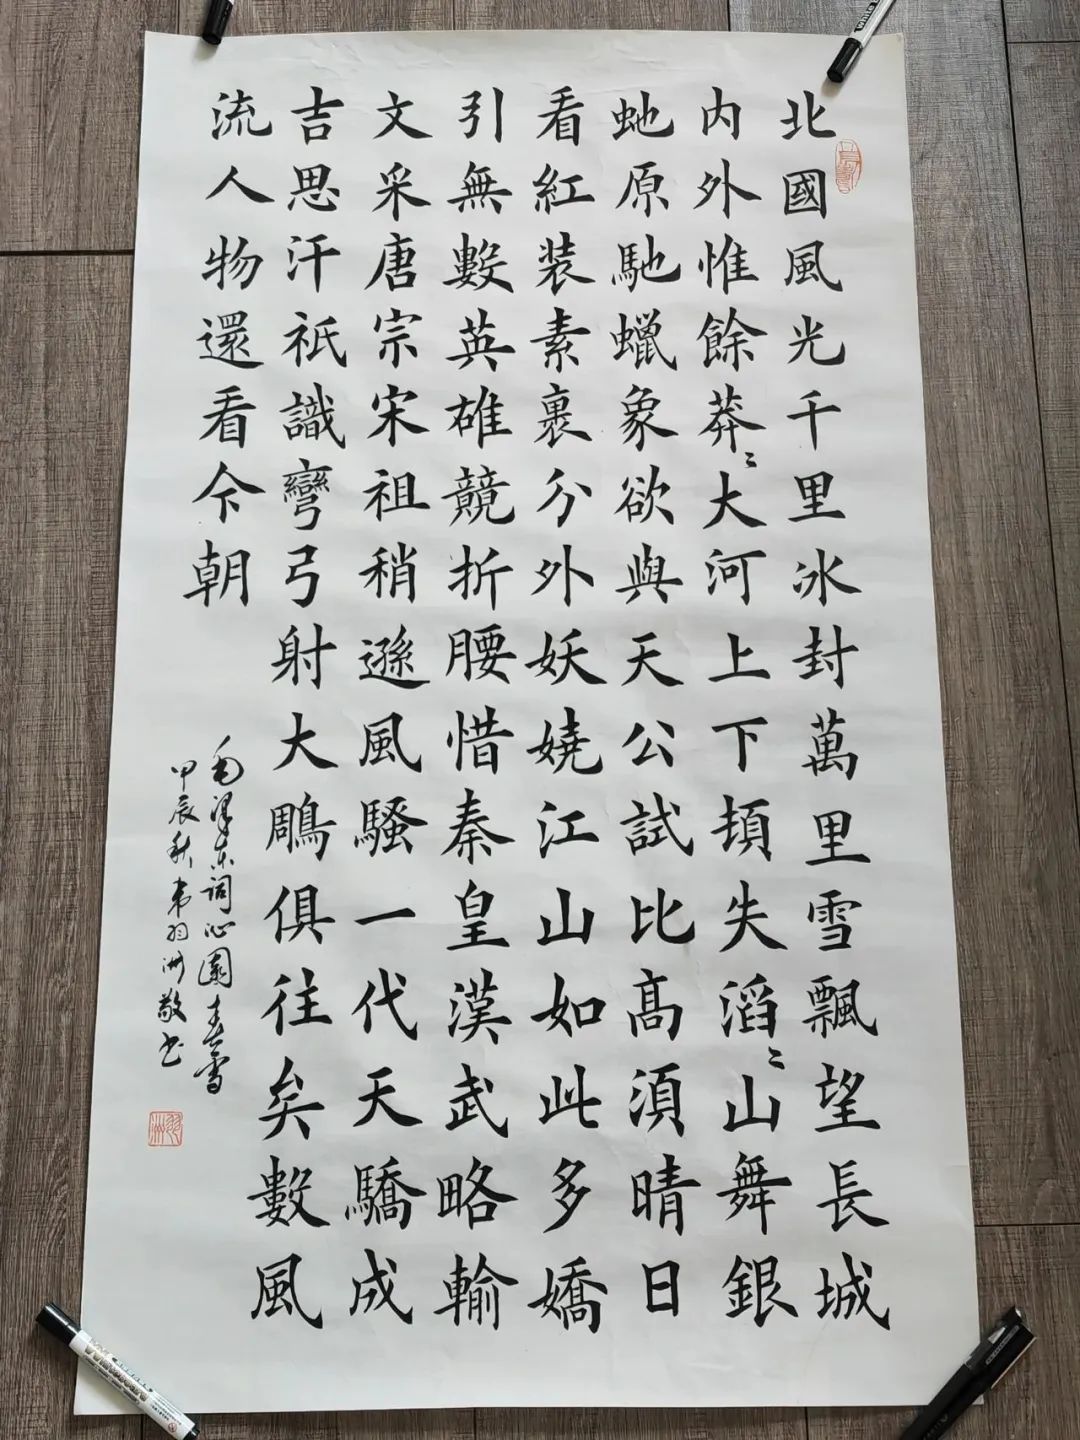 北國風光千里冰封萬里雪飄望長城
内外惟餘莽〻大河上下頓失滔〻山舞銀
虵原馳蠟象欲與天公試比高須晴日
看紅装素裹分外妖嬈江山如此多嬌
引無數英雄競折腰惜秦皇漢武略輸
文采唐宗宋祖稍遜風騷一代天驕成
吉思汗祇識彎弓射大鵰俱往矣數風
流人物還看今朝
毛澤东詞沁園春雪
甲辰秋韦羽洲敬书